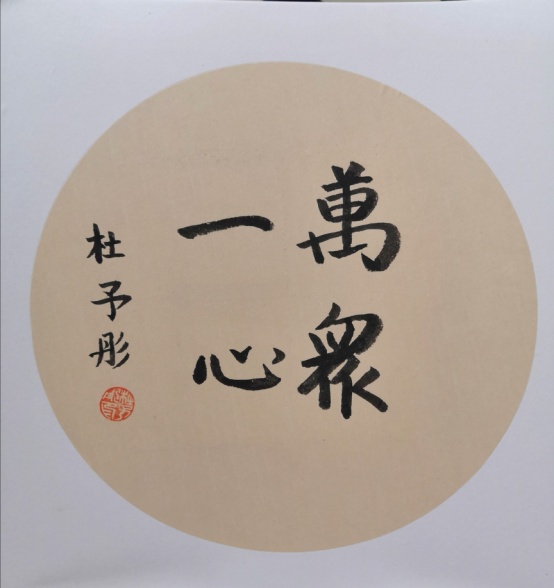 萬眾
一心
杜予彤